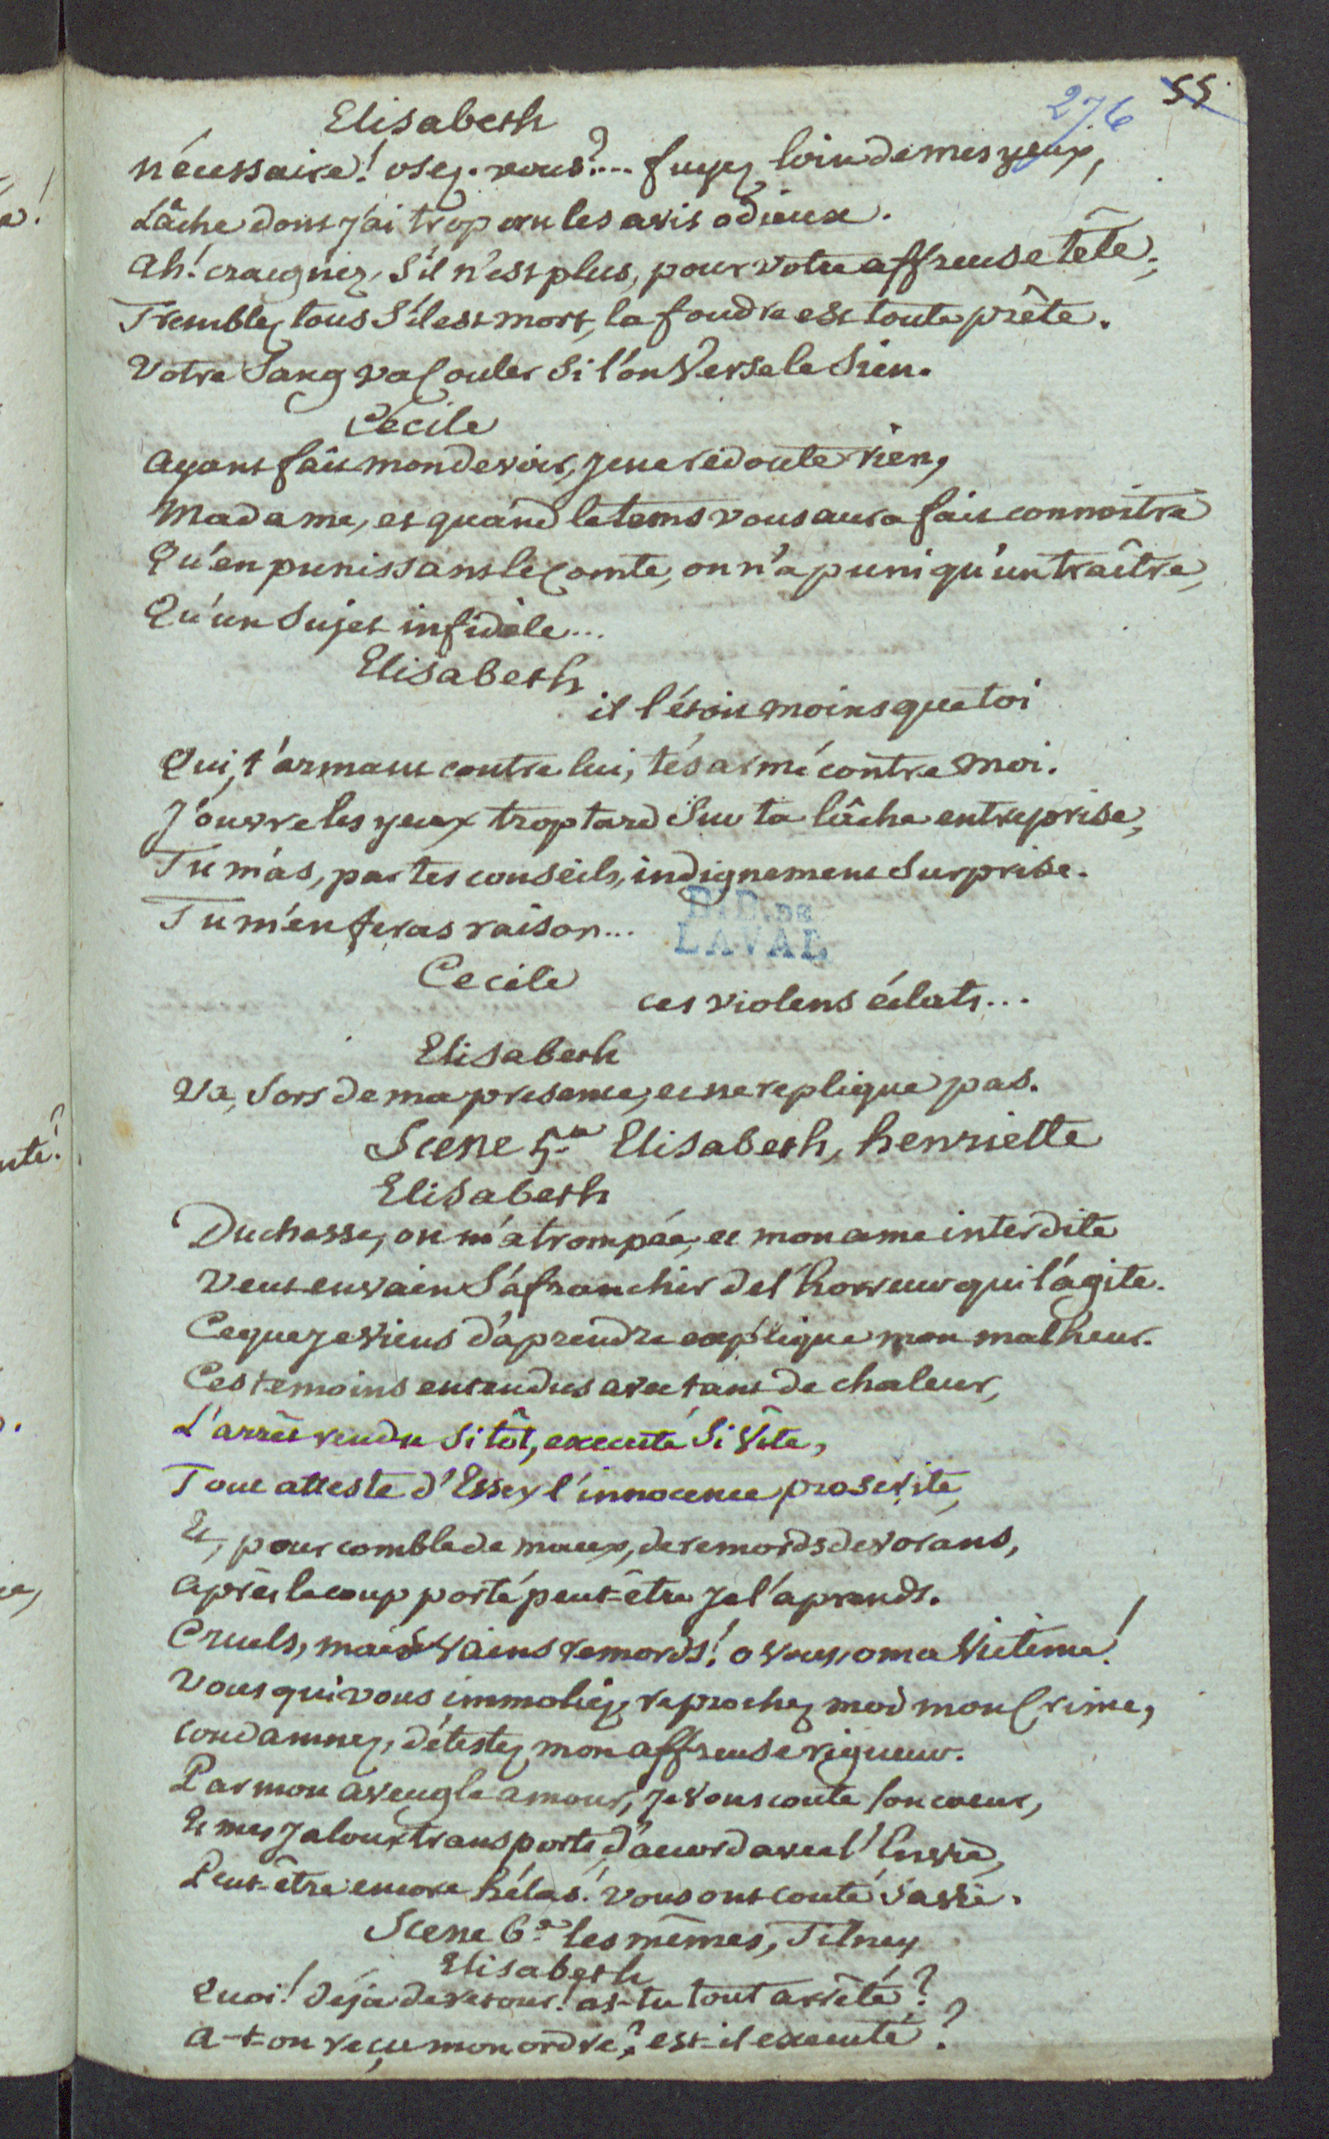 55
276
Elisabeth
nécessaire! osez-vous?... fuyez loin de mes yeux,
Lâche dont j'ai trop cru les avis odieux.
ah! craignez, S'il n'est plus, pour votre affreuse tête;
Tremblez tous S'il est mort, la foudre est toute prête.
Votre Sang va Couler Si l'on Verse le Sien.
Cécile
ayant fait mon devoir, je ne redoute rien,
Madame, et quand le tems vous aura fait connoître
Qu'en punissant le Comte, on n'a puni qu'un traître,
Qu'un Sujet infidèle...
Elisabeth
il l'étoit moins que toi
Qui, t'armant contre lui, t'és armé contre moi.
J'ouvre les yeux trop tard Sur ta lâche entreprise,
Tu m'as, par tes conseils, indignement Surprise.
Tu m'en feras raison...
B.P. DE
LAVAL
Cecile
ces violens éclats...
Elisabeth
Va, Sors de ma presence, et ne replique pas.
Scene 5e Elisabeth, henriette
Elisabeth
Duchesse, on m'a trompée, et mon ame interdite
Veut en vain S'afranchir de l'horreur qui l'agite.
Ce que je viens d'aprendre explique mon malheur.
Ces temoins entendus avec tant de chaleur,
L'arrêt rendu Si tôt, executé Si Vîte,
Tout atteste d'Essex l'innocence proscrite,
Et, pour comble de maux, de remords devorans,
après le coup porté peut-être je l'aprends.
Cruels, mais Vains remords! o Vous, o ma Victime!
Vous qui vous immoliez, reprochez moi mon Crime,
condamnez, détestez mon affreuse rigueur.
Par mon aveugle amour, je vous coute son coeur,
Et mes jaloux transports, d'accord avec l'Envie,
Peut-être encore hélas! vous ont couté Sa vie.
Scene 6e les mêmes, Tilney
Elisabeth
Quoi! déja de retour! as-tu tout arrêté?
a-t-on reçu mon ordre? est-il executé?